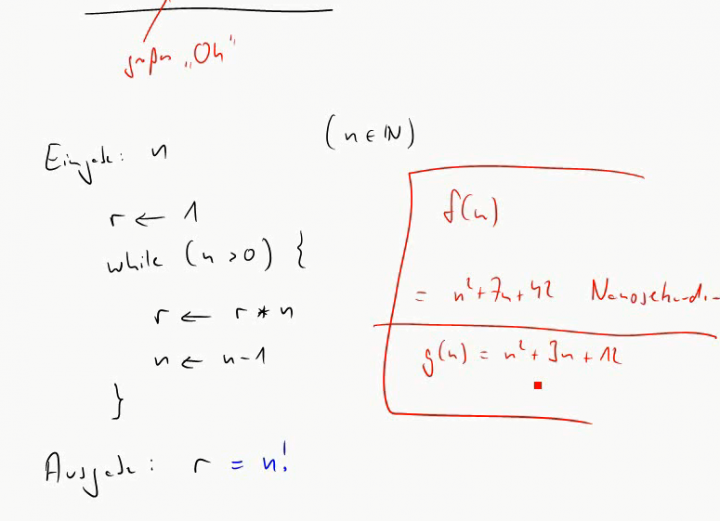 großes „Oh“
Eingabe: n (n ∈ ℕ)
r ← 1
while (n > 0) {
r ← r * n
n ← n - 1
}
Ausgabe: r = n!
f(n)
= n² + 7n + 42 Nanosekunden
g(n) = n² + 3n + 12